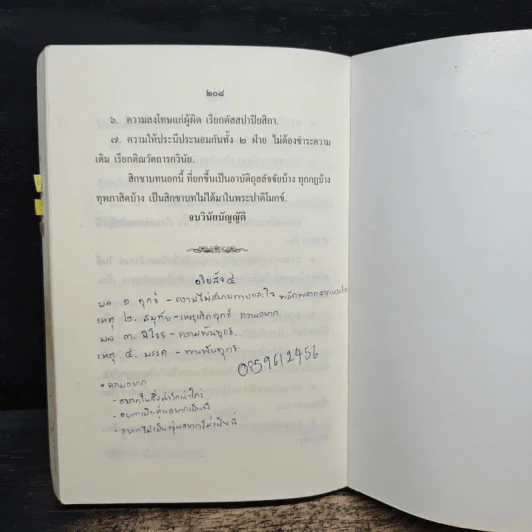 ๒๐๘
๖. ความลงโทษแก่ผู้ผิด เรียกตัสสปาปิยสิกา.
๗. ความให้ประนีประนอมกันทั้ง ๒ ฝ่าย ไม่ต้องชำระความ
เดิม เรียกติณวัตถารกวินัย.
สิกขาบทนอกนี้ ที่ยกขึ้นเป็นอาบัติถุลลัจจัยบ้าง ทุกกฏบ้าง
ทุพภาสิตบ้าง เป็นสิกขาบทไม่ได้มาในพระปาติโมกข์.
จบวินัยบัญญัติ
อริยสัจ ๔
ผล ๑. ทุกข์ - ความไม่สบายกายและใจ
เหตุ ๒. สมุทัย - เหตุเกิดทุกข์ ความอยาก
ผล ๓. นิโรธ - ความพ้นทุกข์
เหตุ ๔. มรรค - ทางพ้นทุกข์
0859612456
* ความอยาก
- อยากในสิ่งน่ารักน่าใคร่
- อยากเป็นอยากเป็นนี่
- อยากไม่เป็นอยากไม่เป็นนี่